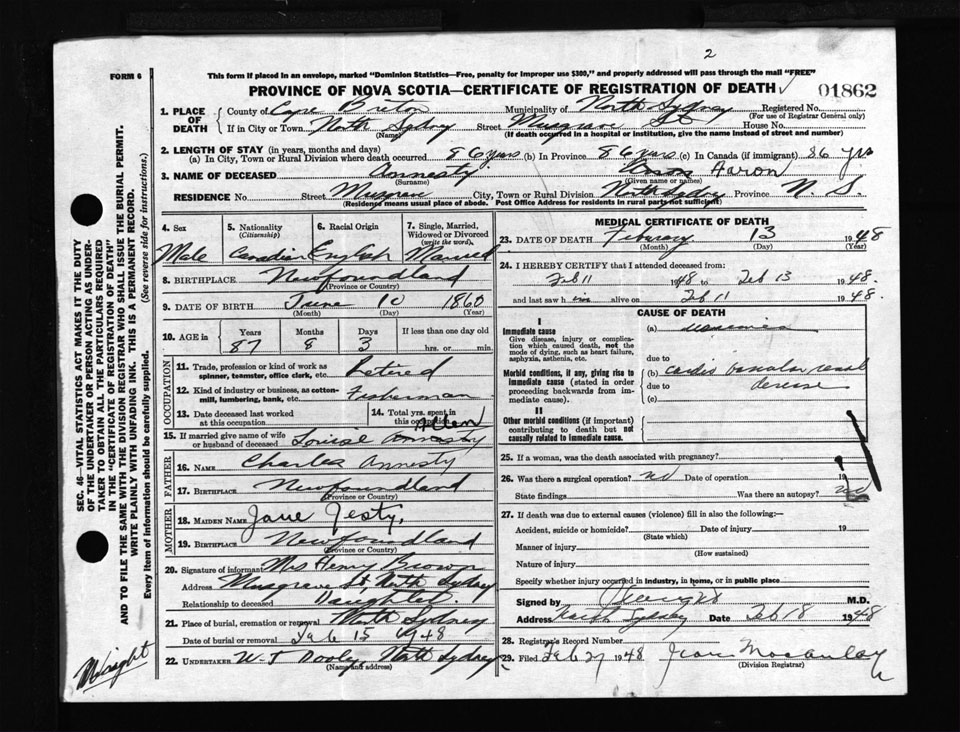 2
FORM 6
This form if placed in an envelope, marked "Dominion Statistics—Free, penalty for improper use $300," and properly addressed will pass through the mail "FREE"
PROVINCE OF NOVA SCOTIA—CERTIFICATE OF REGISTRATION OF DEATH 01862
1. PLACE OF DEATH County of Cape Breton Municipality of North Sydney Registered No.
(For use of Registrar General only)
If in City or Town North Sydney Street Musgrave St House No.
(Name) (If death occurred in a hospital or institution, give the name instead of street and number)
2. LENGTH OF STAY (in years, months and days)
(a) In City, Town or Rural Division where death occurred 86 yrs (b) In Province 86 yrs (c) In Canada (if immigrant) 86 yrs
3. NAME OF DECEASED Annesty Aaron
(Surname) (Given name or names)
RESIDENCE No. Street Musgrave City, Town or Rural Division North Sydney Province N S.
(Residence means usual place of abode. Post Office Address for residents in rural parts not sufficient)
4. Sex 5. Nationality (Citizenship) 6. Racial Origin 7. Single, Married, Widowed or Divorced (write the word)
Male Canadian English Married
8. BIRTHPLACE Newfoundland
(Province or Country)
9. DATE OF BIRTH June 10 1860
(Month) (Day) (Year)
10. AGE in Years Months Days If less than one day old
87 8 3 hrs. or min.
OCCUPATION
11. Trade, profession or kind of work as spinner, teamster, office clerk, etc. Retired
12. Kind of industry or business, as cotton-mill, lumbering, bank, etc. Fisherman
13. Date deceased last worked at this occupation 14. Total yrs. spent in this occupation
15. If married give name of wife or husband of deceased Louise Annesty
FATHER
16. NAME Charles Annesty
17. BIRTHPLACE Newfoundland
(Province or Country)
MOTHER
18. MAIDEN NAME Jane Jesty,
19. BIRTHPLACE Newfoundland
(Province or Country)
20. Signature of informant Mrs Henry Brown
Address Musgrave St, North Sydney
Relationship to deceased Daughter
21. Place of burial, cremation or removal North Sydney
Date of burial or removal Feb 15 1948
22. UNDERTAKER W. J Dooly, North Sydney
(Name and address)
MEDICAL CERTIFICATE OF DEATH
23. DATE OF DEATH February 13 1948
(Month) (Day) (Year)
24. I HEREBY CERTIFY that I attended deceased from
Feb 11 1948 to Feb 13 1948.
and last saw h im alive on Feb 11 1948.
CAUSE OF DEATH
I
Immediate cause (a)
Give disease, injury or complication which caused death, not the mode of dying, such as heart failure, asphyxia, asthenia, etc.
due to
Morbid conditions, if any, giving rise to immediate cause (stated in order proceeding backwards from immediate cause).
(b) cardio vascular renal
due to disease
(c)
II
Other morbid conditions (if important) contributing to death but not causally related to immediate cause.
25. If a woman, was the death associated with pregnancy?
26. Was there a surgical operation? no Date of operation 19
State findings Was there an autopsy? no
27. If death was due to external causes (violence) fill in also the following:—
Accident, suicide or homicide? Date of injury 19
(State which)
Manner of injury
(How sustained)
Nature of injury
Specify whether injury occurred in industry, in home, or in public place
Signed by M.D.
Address North Sydney Date Feb 18 1948
28. Registrar's Record Number
29. Filed Feb 27 1948 Jean Macaulay
(Division Registrar)
SEC. 46—VITAL STATISTICS ACT MAKES IT THE DUTY
OF THE UNDERTAKER OR PERSON ACTING AS UNDER-
TAKER TO OBTAIN ALL THE PARTICULARS REQUIRED
IN THE "CERTIFICATE OF REGISTRATION OF DEATH"
AND TO FILE THE SAME WITH THE DIVISION REGISTRAR WHO SHALL ISSUE THE BURIAL PERMIT.
WRITE PLAINLY WITH UNFADING INK. THIS IS A PERMANENT RECORD.
Every item of information should be carefully supplied. (See reverse side for instructions.)
MWright